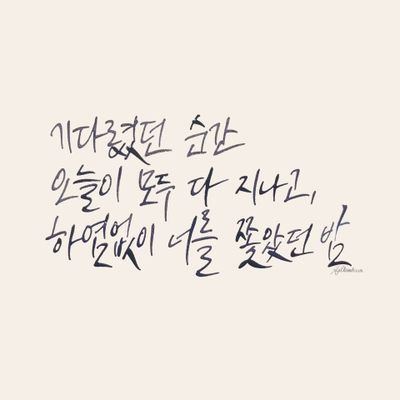 기다렸던 순간
오늘이 모두 다 지나고,
하염없이 너를 쫓았던 밤